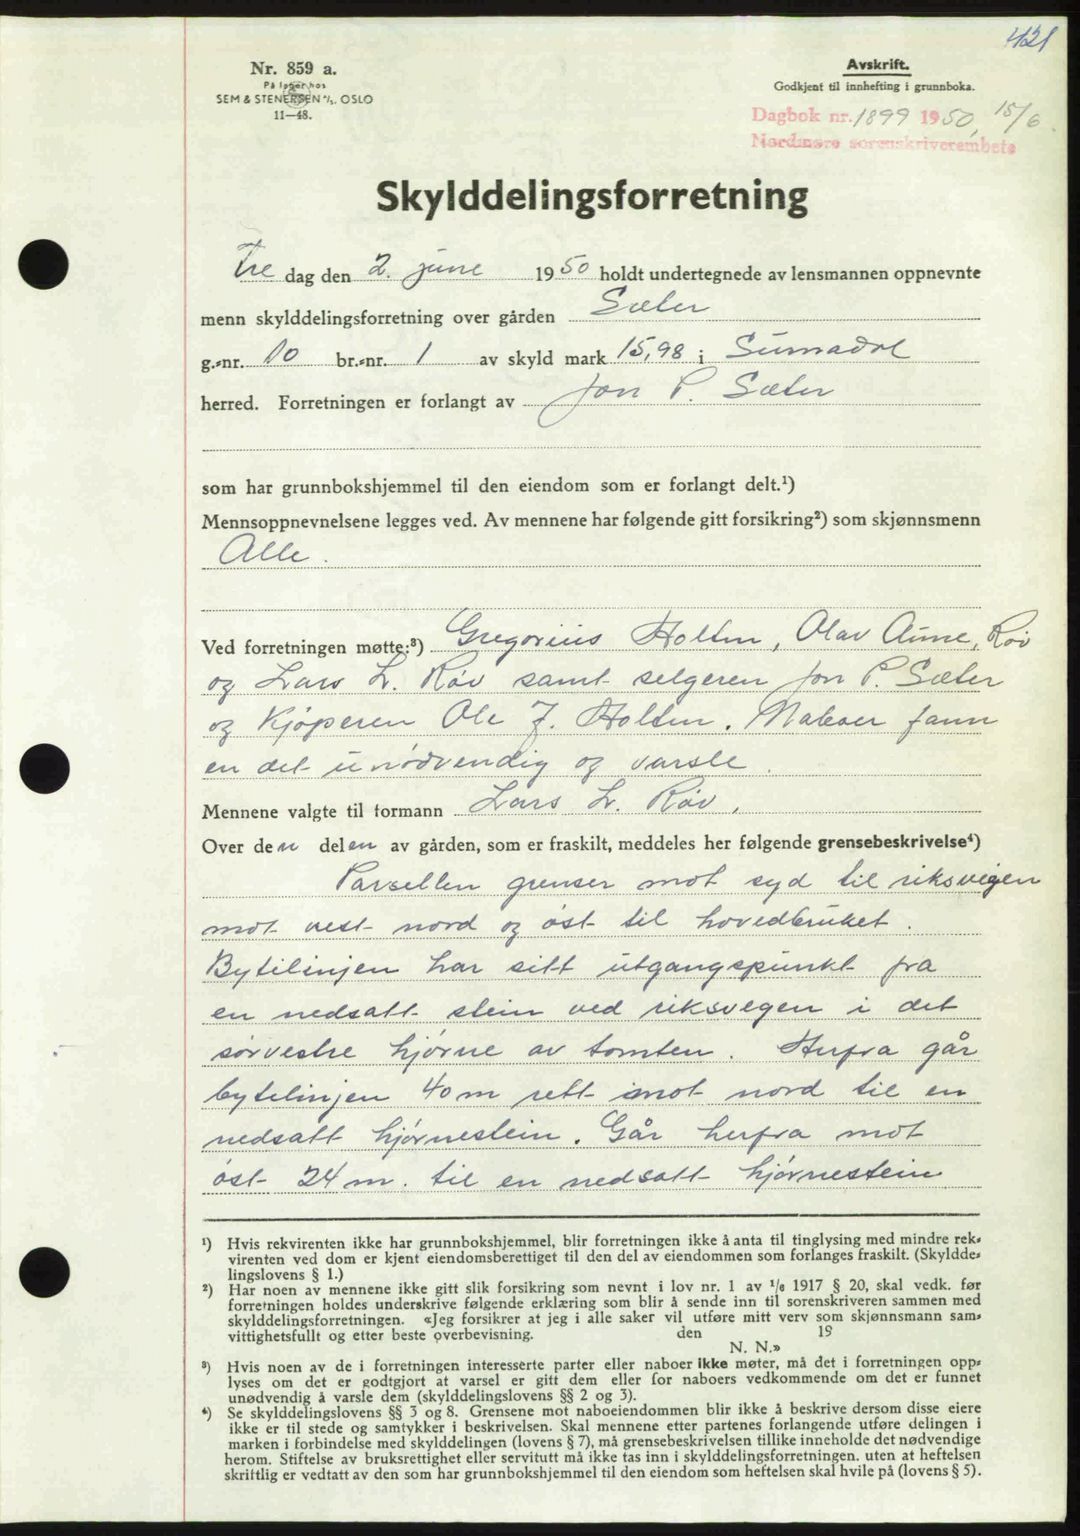 421
Nr. 859 a.
På lager hos
SEM & STENERSEN A/S. OSLO
11—48.
Avskrift.
Godkjent til innhefting i grunnboka.
Dagbok nr. 1899 1950, 15/6.
Nordmøre sorenskriverembete
Skylddelingsforretning
Fre dag den 2. june 1950 holdt undertegnede av lensmannen oppnevnte
menn skylddelingsforretning over gården Sæter
g.-nr. 10 br.-nr. 1 av skyld mark 15,98 i Surnadal
herred. Forretningen er forlangt av Jon P. Sæter
som har grunnbokshjemmel til den eiendom som er forlangt delt.¹)
Mennsoppnevnelsene legges ved. Av mennene har følgende gitt forsikring²) som skjønnsmenn
Alle.
Ved forretningen møtte:³) Gregorius Holten, Olav Aune, Røv
og Lars L. Røv samt selgeren Jon P. Sæter
og Kjøperen Ole J. Holten. Naboer fann
en det unødvendig og varsle.
Mennene valgte til formann Lars L. Røv,
Over den delen av gården, som er fraskilt, meddeles her følgende grensebeskrivelse⁴)
Parsellen grenser mot syd til riksveigen
mot vest nord og øst til hovedbruket.
Bytilinjen har sitt utgangspunkt fra
en nedsatt stein ved riksvegen i det
sørvestre hjørne av tomten. Herfra går
bytelinjen 40 m rett imot nord til en
nedsatt hjørnestein. Går herfra mot
øst 24 m. til en nedsatt hjørnestein
¹) Hvis rekvirenten ikke har grunnbokshjemmel, blir forretningen ikke å anta til tinglysing med mindre rek-
virenten ved dom er kjent eiendomsberettiget til den del av eiendommen som forlanges fraskilt. (Skyldde-
lingslovens § 1.)
²) Har noen av mennene ikke gitt slik forsikring som nevnt i lov nr. 1 av 1/6 1917 § 20, skal vedk. før
forretningen holdes underskrive følgende erklæring som blir å sende inn til sorenskriveren sammen med
skylddelingsforretningen. «Jeg forsikrer at jeg i alle saker vil utføre mitt verv som skjønnsmann sam-
vittighetsfullt og etter beste overbevisning. den 19
N. N.»
³) Hvis noen av de i forretningen interesserte parter eller naboer ikke møter, må det i forretningen opp-
lyses om det er godtgjort at varsel er gitt dem eller for naboers vedkommende om det er funnet
unødvendig å varsle dem (skylddelingslovens §§ 2 og 3).
⁴) Se skylddelingslovens §§ 3 og 8. Grensene mot naboeiendommen blir ikke å beskrive dersom disse eiere
ikke er til stede og samtykker i beskrivelsen. Skal mennene etter partenes forlangende utføre delingen i
marken i forbindelse med skylddelingen (lovens § 7), må grensebeskrivelsen tillike inneholde det nødvendige
herom. Stiftelse av bruksrettighet eller servitutt må ikke tas inn i skylddelingsforretningen. uten at heftelsen
skriftlig er vedtatt av den som har grunnbokshjemmel til den eiendom som heftelsen skal hvile på (lovens § 5).